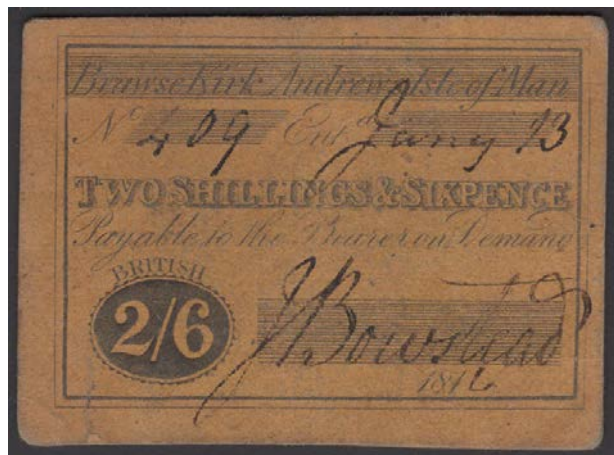 Browse Kirk Andrew Isle of Man
No 409 Entd Jany 13
TWO SHILLINGS & SIXPENCE
Payable to the Bearer on Demand
BRITISH
2/6
J Bowstead
1816